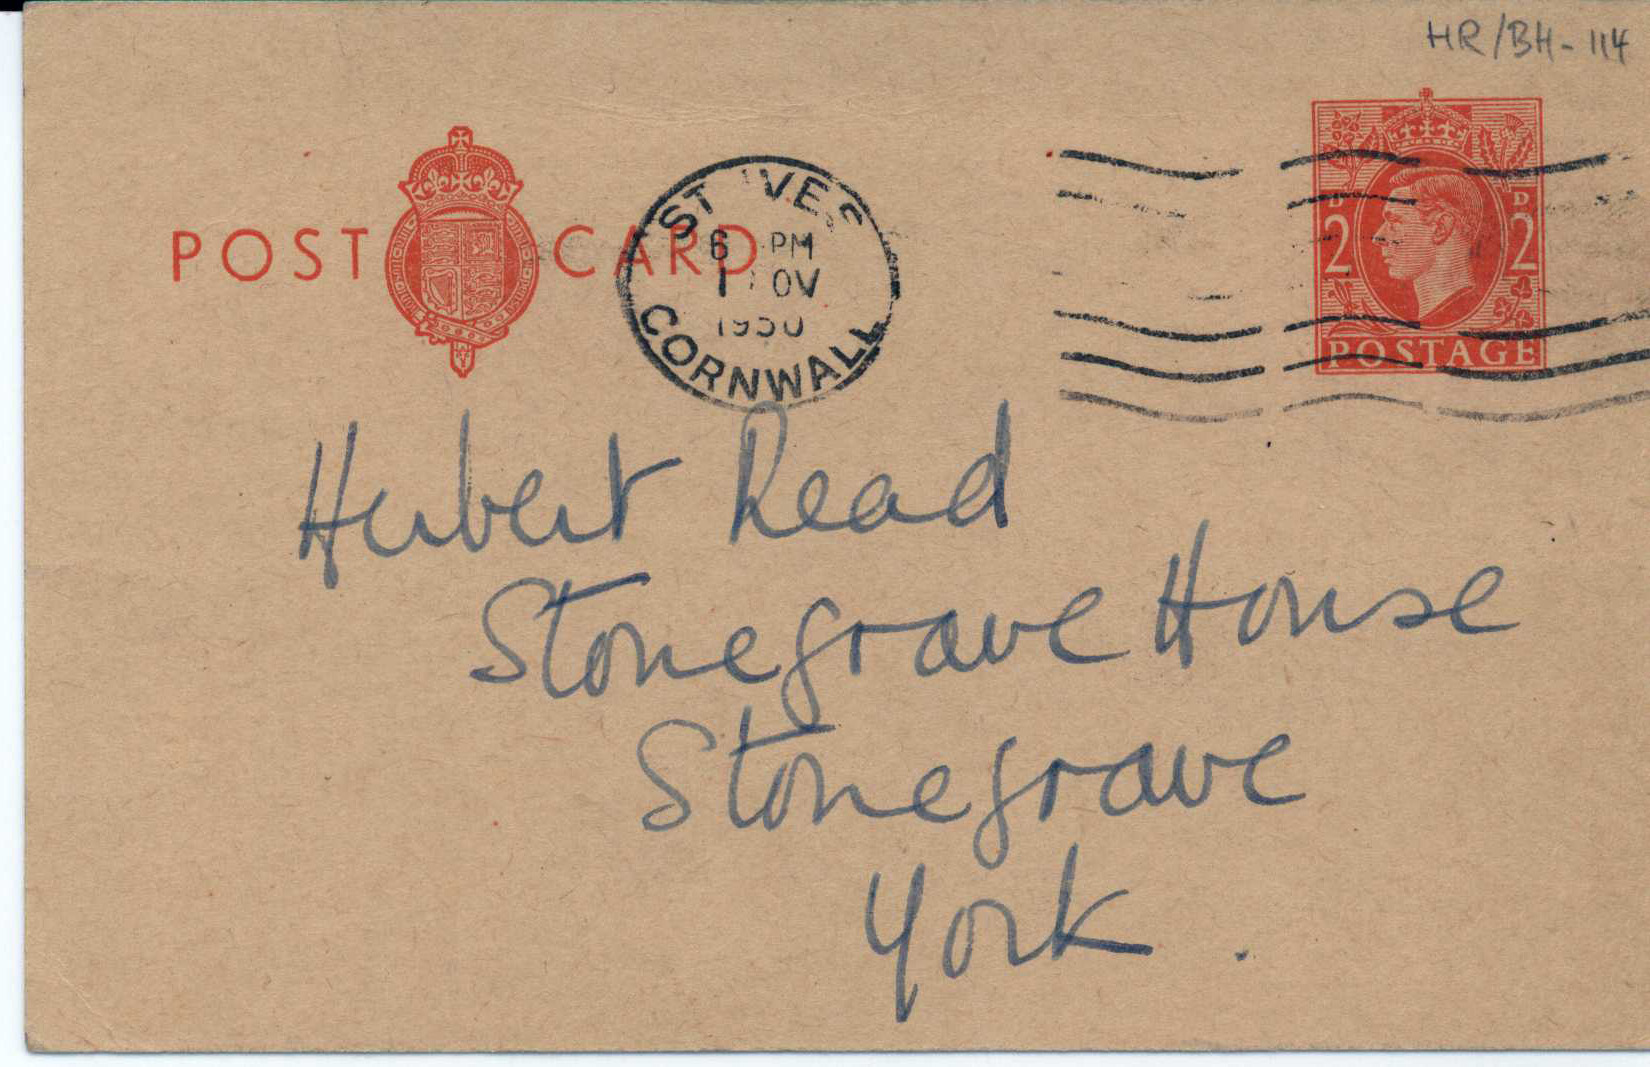 HR/BH-114
POST CARD
ST IVES
6 PM
1950
CORNWALL
2D 2D
POSTAGE
Herbert Read
Stonegrave House
Stonegrave
York.